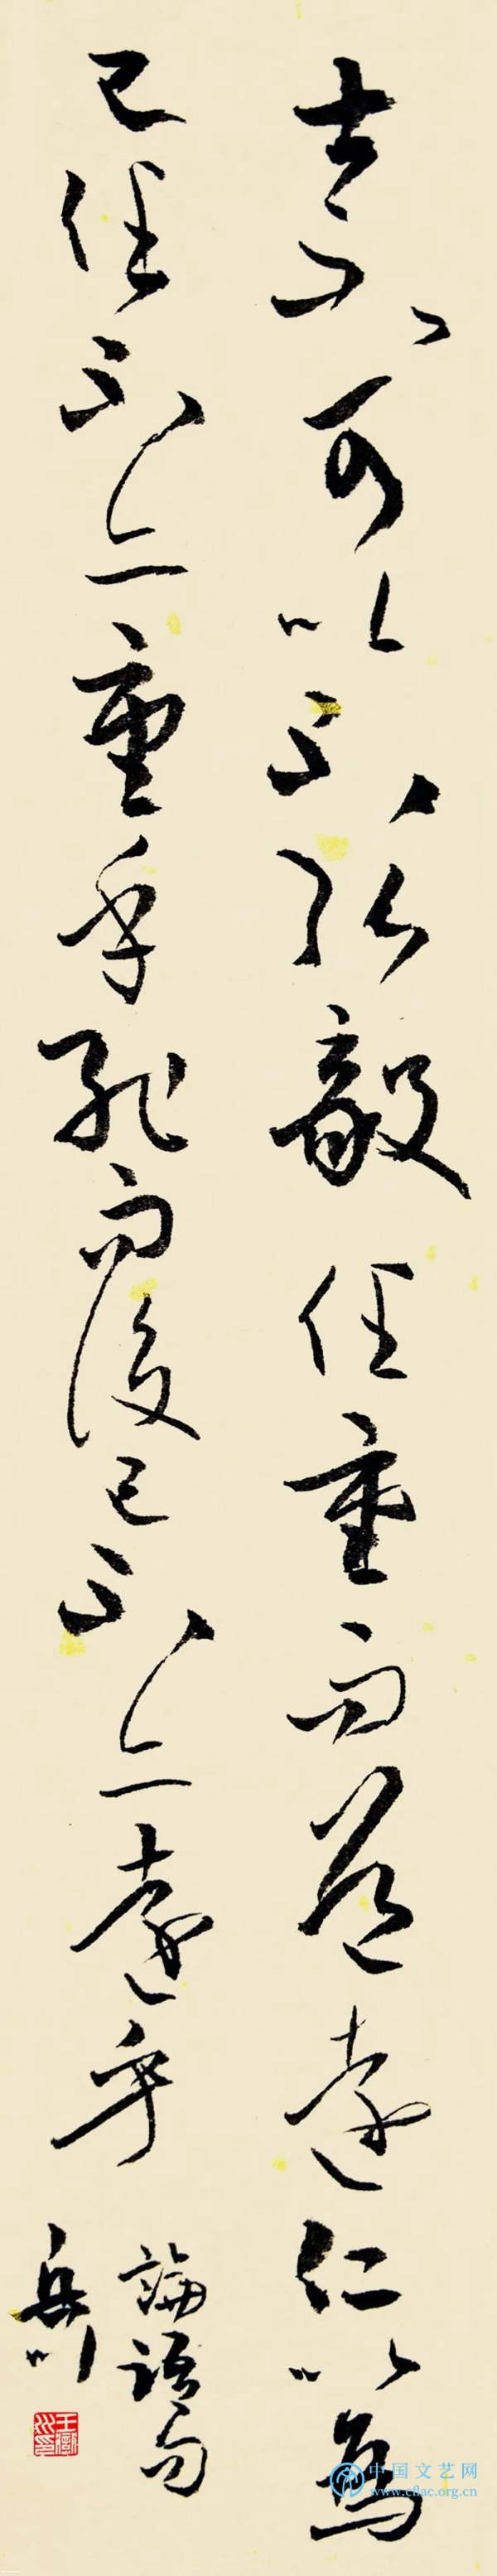 士不可以不弘毅任重而道遠仁以為
己任不亦重乎死而後已不亦遠乎
論語句
岳川
中国文艺网
www.cflac.org.cn